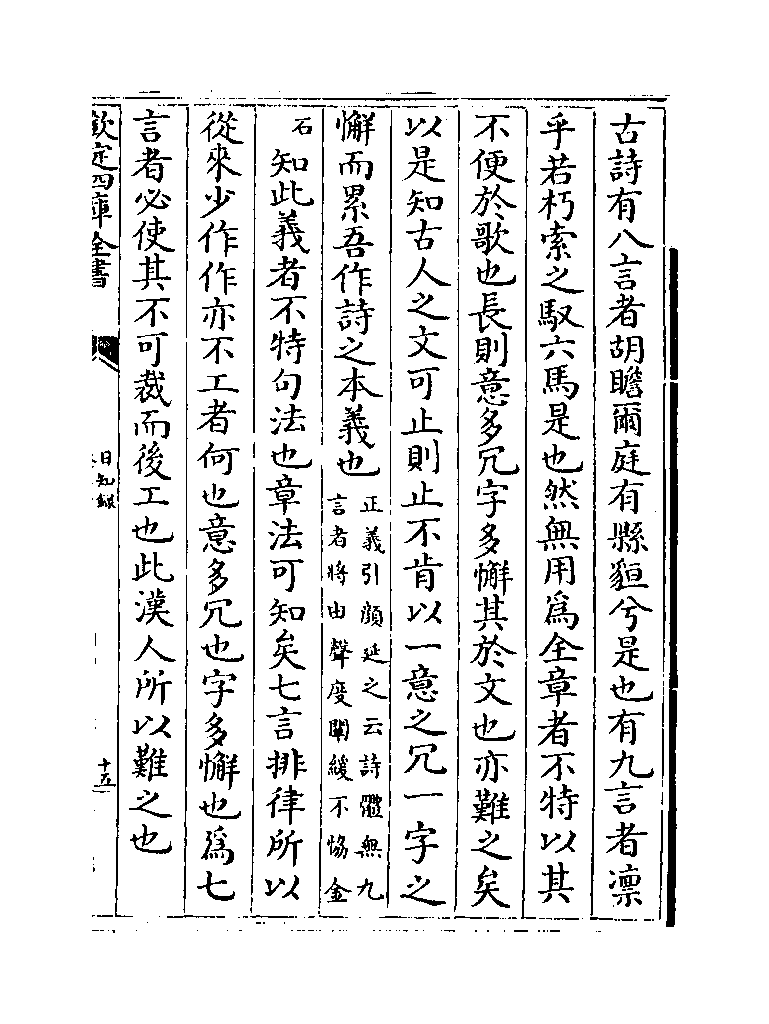 古詩有八言者胡瞻爾庭有縣貆兮是也有九言者凛
乎若朽索之馭六馬是也然無用爲全章者不特以其
不便於歌也長則意多冗字多懈其於文也亦難之矣
以是知古人之文可止則止不肯以一意之冗一字之
懈而累吾作詩之本義也正義引顔延之云詩體無九
言者將由聲度闡緩不恊金
石知此義者不特句法也章法可知矣七言排律所以
從來少作作亦不工者何也意多冗也字多懈也爲七
言者必使其不可裁而後工也此漢人所以難之也
欽定四庫全書
日知錄
十五